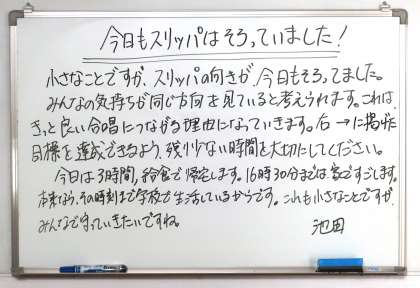 今日もスリッパはそろっていました!
小さなことですが、スリッパの向きが、今日もそろってました。
みんなの気持ちが同じ方向を見ていると考えられます。これは、
きっと良い合唱につながる理由になっていきます。右→に掲げた
目標を達成できるよう、残り少ない時間を大切にしてください。
今日は3時間、給食で帰宅します。16時30分までは家ですごします。
本来なら、その時刻まで学校で生活しているからです。これも小さなことですが、
みんなで守っていきたいですね。
池田